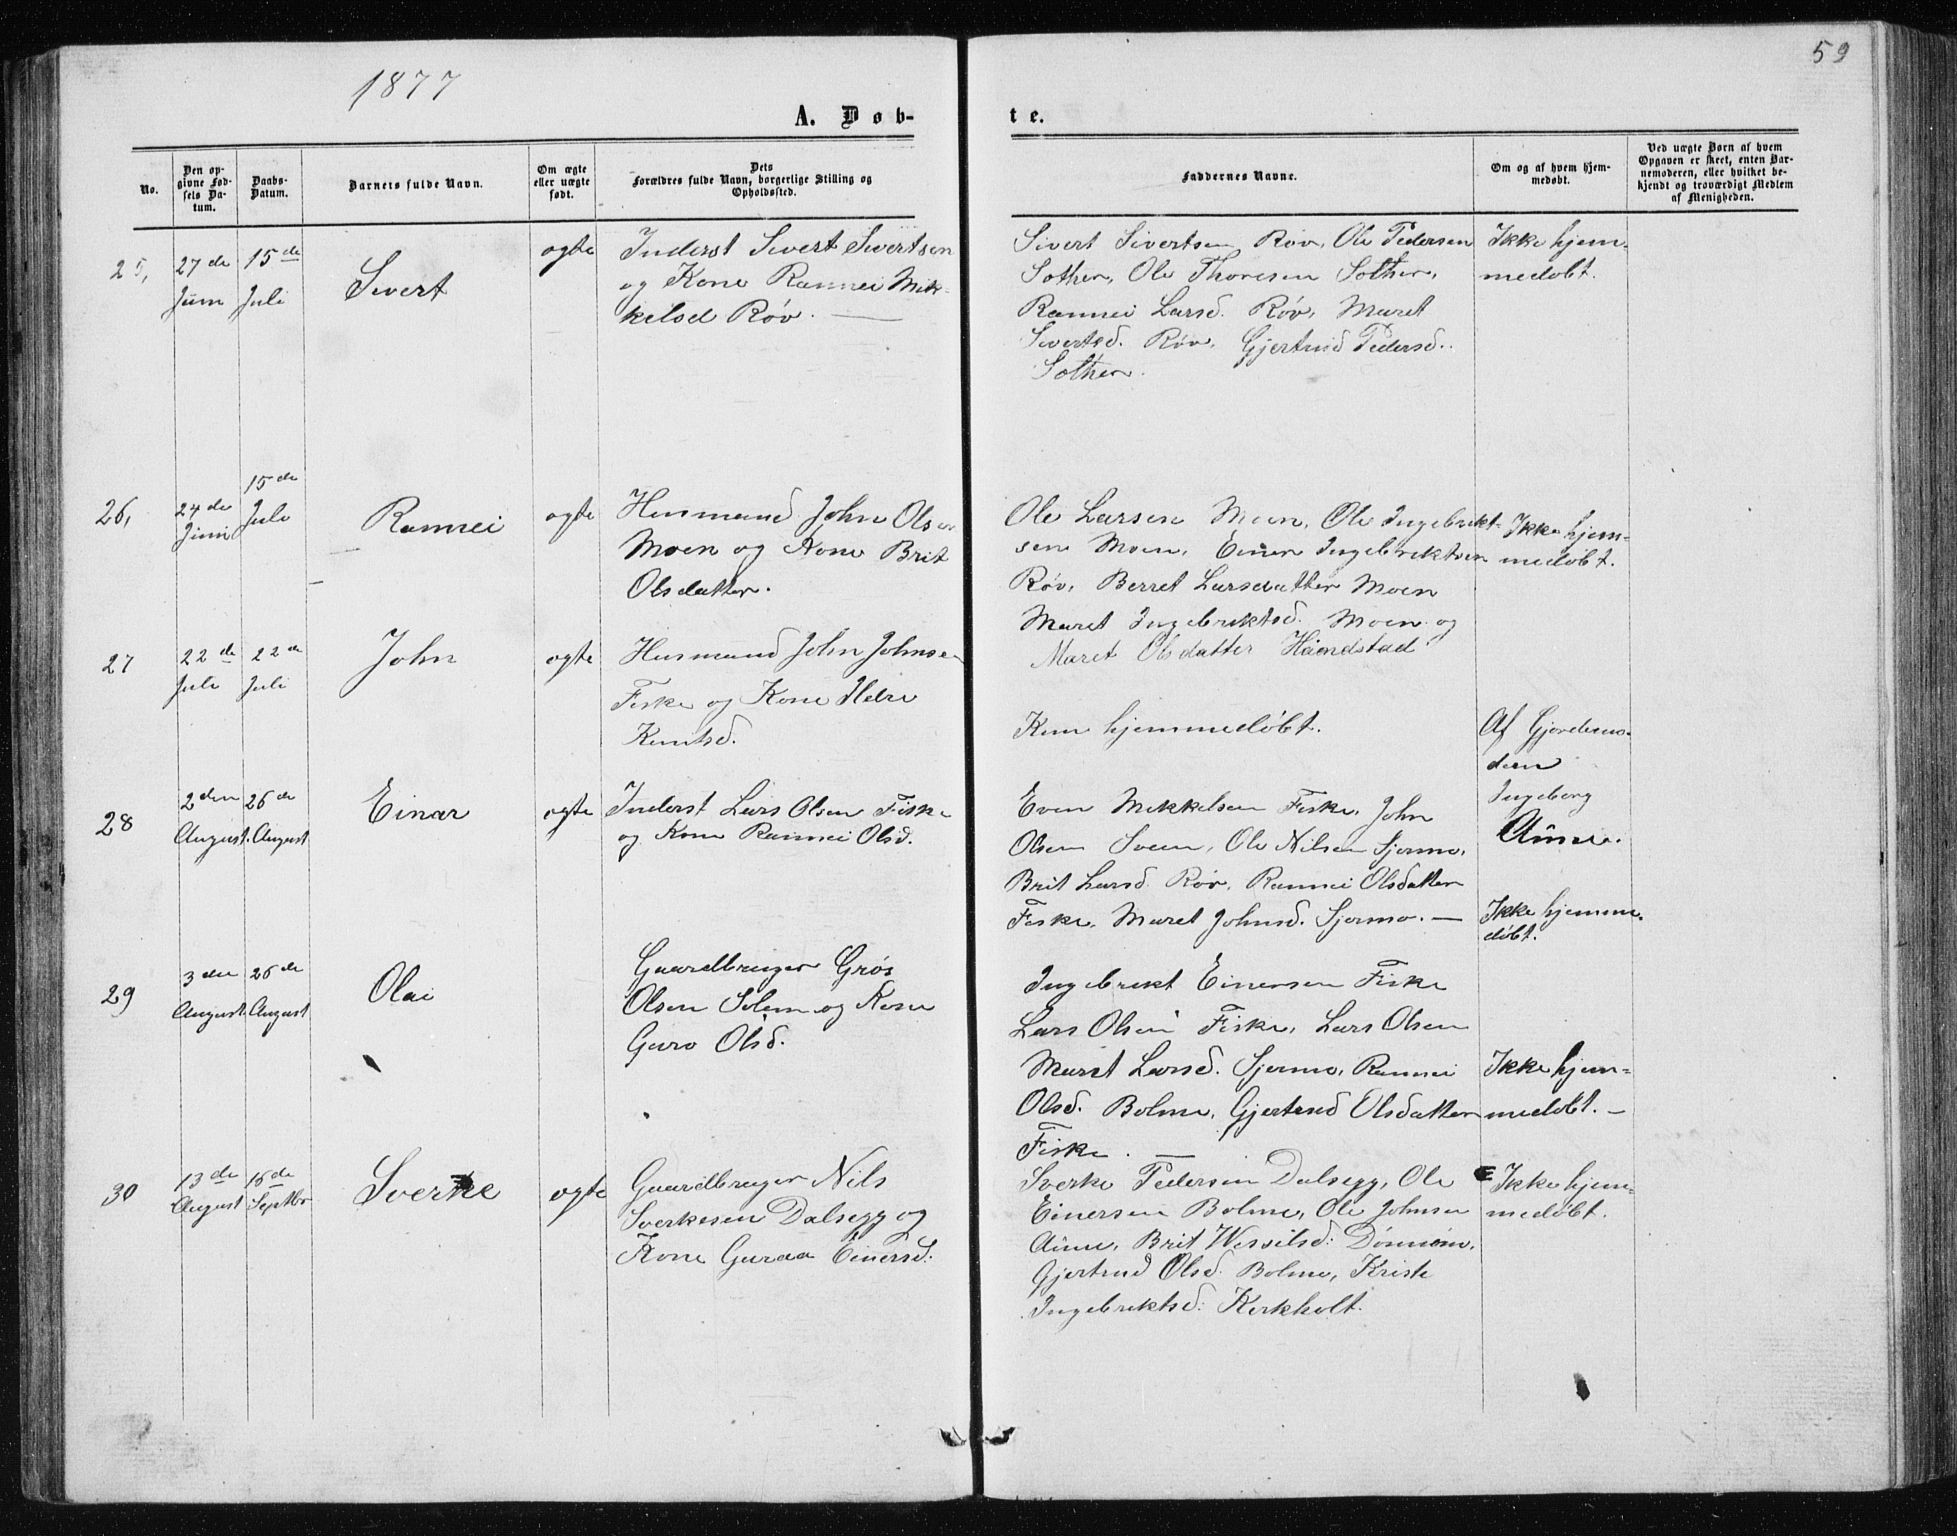 1877
59
A. Døb-
te.
No.
Den op-
givne Fød-
sels Da-
tum.
Daabs-
Datum.
Barnets fulde Navn.
Om ægte
eller uægte
født.
Dets
Forældres fulde Navn, borgerlige Stilling og
Opholdssted.
Faddernes Navne.
Om og af hvem hjem-
medøbt.
Ved uægte Børn af hvem
Opgaven er skeet, enten Bar-
nemoderen, eller hvilket be-
kjendt og troværdigt Medlem
af Menigheden.
25,
27de
Juni
15de
Juli
Sivert
ogte
Inderst Sivert Sivertsen
og Kone Rannei Mik-
kelsd Røv.
Sivert Sivertsen Røv, Ole Pedersen
Sæther, Ole Thoresen Sæther,
Rannei Larsd. Røv, Maret
Sivertsd. Røv, Gjertrud Pedersd.
Sæther.
Ikke hjem-
medøbt.
26,
24de
Juni
15de
Juli
Rannei
ogte
Husmand John Olsen
Moen og Kone Brit
Olsdatter.
Ole Larsen Moen, Ole Ingebrikt-
sen Moen, Einer Ingebriktsen
Røv, Berret Larsdatter Moen
Maret Ingebriktsd. Moen og
Maret Olsdatter Haandstad
Ikke hjem-
medøbt.
27
22de
Juli
22de
Juli
John
ogte
Husmand John Johnsen
Fiske og Kone
Knutsd.
Kun hjemmedøbt.
Af Gjordemo-
dern
Ingeborg
Aune.
28
2den
August.
26de
August
Einar
ogte
Inderst Lars Olsen Fiske
og Kone Rannei Olsd.
Even Mikkelsen Fiske, John
Olsen Sveen, Ole Nilsen Sjermo,
Brit Larsd. Røv, Rannei Olsdatter
Fiske, Maret Johnsd. Sjermo. —
Ikke hjemme-
døbt.
29
3den
August.
26de
August
Olai
Gaardbruger Grøs
Olsen Solem og Kone
Guro Olsd.
Ingebrikt Einersen Fiske
Lars Olsen Fiske, Lars Olsen
Maret Larsd. Sjermo, Rannei
Olsd. Bolme, Gjertrud Olsdatter
Fiske. —
Ikke hjem-
medøbt. —
30
13de
August
16de
Septbr
Sverke
ogte
Gaardbruger Nils
Sverkesen Dalsegg og
Kone Guraa Einersd:
Sverke Pedersen Dalsegg, Ole
Einersen Bolme, Ole Johnsen
Aune, Brit Wessilsd:
Gjertrud Olsd. Bolme, Kriste
Ingebriktsd: Kirkholt.
Ikke hjem-
medøbt.